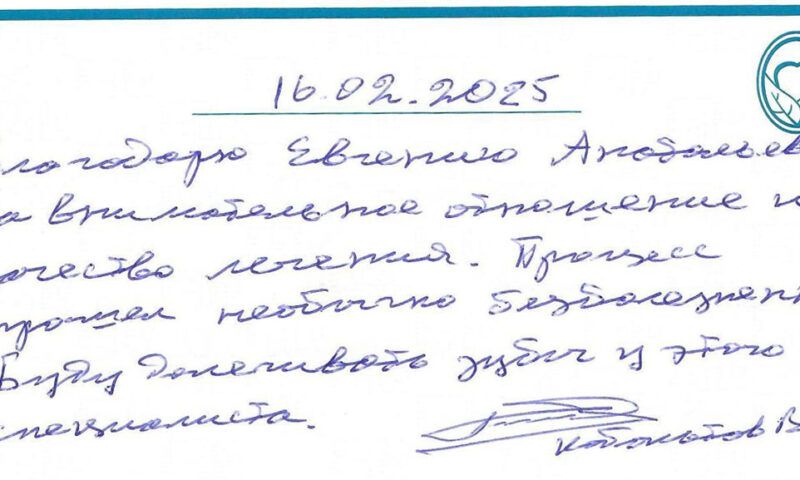 16.02.2025
лагодарю Евгению Анатольев
а внимательное отношение и
ачество лечения. Процесс
прошел необычно безболезненн
Буду долечивать зубы у этого
специалиста.